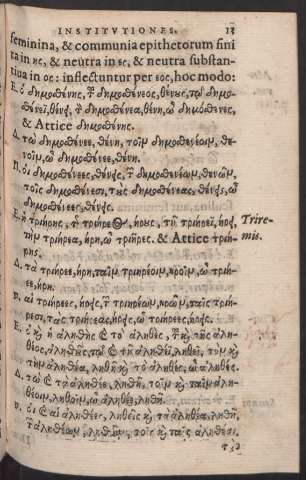 INSTITVTIONES. 13
feminina, & communia epithetorum fini
ta in ης, & neutra in ες, & neutra substan-
tiua in ος: inflectuntur per εος, hoc modo:
Ε. ὁ δημοσθένης, τοῦ δημοσθένεος, θένους, τῷ δημο-
σθένεϊ, θένει, τὸν δημοσθένεα, θένη, ὦ δημόσθενες,
& Atticè δημοσθένης.
Δ. τὼ δημοσθένεε, θένη, τοῖν δημοσθενέοιν, θε-
νοῖν, ὦ δημοσθένεε, θένη.
Π. οἱ δημοσθένεες, θένεις, τῶν δημοσθενέων, θενῶν,
τοῖς δημοσθένεσι, τοὺς δημοσθένεας, θένεις, ὦ
δημοσθένεες, θένεις.
Ε. ἡ τριήρης, τῆς τριήρεος, ήρους, τῇ τριήρεϊ, ήρει, Trire-
τὴν τριήρεα, ήρη, ὦ τριῆρες. & Atticè τριή- mis.
ρης.
Δ. τὰ τριήρεε, ήρη, ταῖν τριηρέοιν, ηροῖν, ὦ τριήρε
ε, ήρη.
Π. αἱ τριήρεες, ήρεις, τῶν τριηρέων, ηρῶν, ταῖς τριή-
ρεσι, τὰς τριήρεας, ήρεις, ὦ τριήρεες, ήρεις.
Ε. ὁ καὶ ἡ ἀληθὴς καὶ τὸ ἀληθὲς, τοῦ καὶ τῆς ἀλη-
θέος, ἀληθοῦς, τῷ καὶ τῇ ἀληθέϊ, ληθεῖ, τὸν καὶ
τὴν ἀληθέα, ληθῆ, καὶ τὸ ἀληθὲς, ὦ ἀληθές.
Δ. τὼ καὶ τὰ ἀληθέε, ληθῆ, τοῖν καὶ ταῖν ἀλη-
θέοιν, ληθοῖν, ὦ ἀληθέε, ληθῆ.
Π. οἱ καὶ αἱ ἀληθέες, ληθεῖς καὶ τὰ ἀληθέα, ληθῆ,
τῶν ἀληθέων, ληθῶν, τοῖς καὶ ταῖς ἀληθέσι,